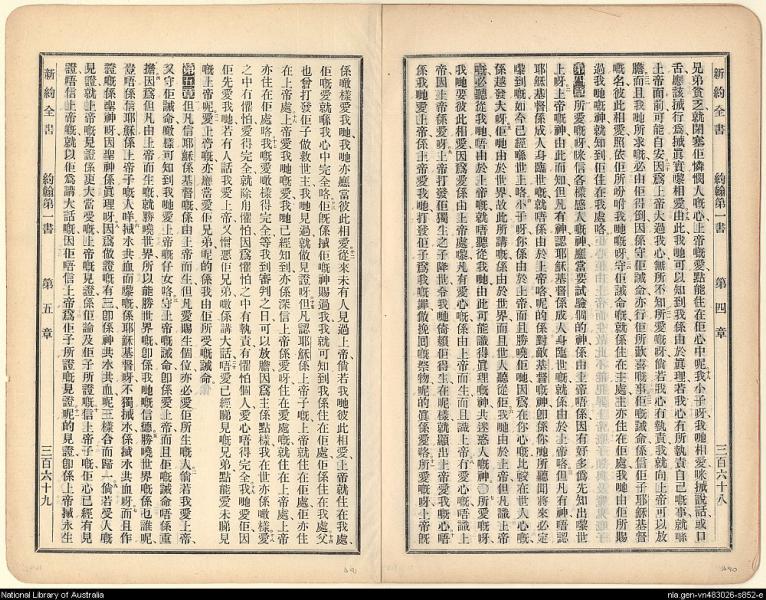 新約全書 約翰第一書 第四章 三百六十八
兄弟貧乏就閉塞佢憐憫人嘅心上帝嘅愛點能住在佢心中呢我小子呀我哋相愛咪搣說話或口
舌應該搣行爲搣眞實嚟相愛由此我哋可以知到我係由於眞理若我心有所執責自己嘅事就喺
上帝面前可能自安因爲上帝大過我心無所不知所愛嘅呀倘若我心有執責我就向上帝可以放
膽而且我哋所求嘅必由佢得倒因係守佢誡命亦行佢所歡喜嘅事佢嘅誡命係信佢子耶穌基督
嘅名彼此相愛照依佢所吩咐我哋嘅呀守佢誡命嘅就係住在主處主亦住在佢處我哋由佢所賜
過我嘅神就知到佢住在我處咯
第四章 所愛嘅呀咪信各樣感人嘅神應當要試驗個的神係由上帝唔係因有好多僞先知出嚟世
上呀上帝嘅神由此而知但凡有神認耶穌基督係成人身臨世嘅就係由於上帝咯但凡有神唔認
耶穌基督係成人身臨世嘅就唔係由於上帝呢的係對敵基督嘅神卽係你哋所聽聞將來必定
嚟到嘅如今已經喺世上咯小子呀你係由於上帝而且勝嘵佢哋因爲在你心嘅比較在世人心嘅
係越發大呀佢哋由於世界故此所講嘅係由於世界而且世人聽從佢我哋由於上帝但凡識上帝
嘅必聽從我哋唔由於上帝嘅就唔聽從我哋由此可能識得眞理嘅神共迷惑人嘅神○所愛嘅呀
我哋要彼此相愛因爲愛係由上帝處嚟凡有愛心嘅由上帝而生而且識上帝冇愛心嘅唔識上
帝因爲上帝係愛呀上帝打發佢獨生之子降世令我哋倚賴佢得生在呢樣就顯出上帝愛我哋唔
係我哋愛上帝係上帝愛我哋打發佢子爲我哋嘅罪做挽回嘅祭物呢的眞係愛咯所愛嘅呀上帝旣
係噉樣愛我哋我哋亦應當彼此相愛從來未有人見過上帝倘若我哋彼此相愛上帝就住在我處
佢嘅愛就喺我心中完全咯佢旣係搣佢嘅神賜過我我可知到我係住在佢處佢係住在我處父
也曾打發佢子做救世主我哋見過就做見證呀但凡認耶穌係上帝子嘅上帝就住在佢處佢亦住
在上帝處上帝愛我哋嘅愛我哋已經知到亦係深信上帝係愛呀住在愛處嘅就住在上帝處上帝
亦住在佢處咯我嘅愛噉樣得完全等我到審判之日可以放膽因爲主係點樣我在世亦係噉樣愛
之中冇懼怕愛得完全就除懼怕因爲懼怕之中有執責有懼怕個人愛心唔得完全我哋愛佢因
佢先愛我哋若有人話我愛上帝又憎惡佢兄弟噉係講大話唔愛已經睇見嘅兄弟點能愛未睇見
嘅上帝呢愛上帝嘅亦應當愛佢兄弟呢的係我由佢所受嘅誡命
第五章 但凡信耶穌係基督嘅係由上帝而生但凡愛賜生個位亦必愛佢所生嘅人倘若我愛上帝
又守佢誡命噉樣可知到我哋愛上帝嘅仔女咯守上帝嘅誡命卽係愛上帝而且佢嘅誡命唔係重
擔因爲但凡由上帝而生嘅就勝嘵世界所以能勝世界嘅卽係我哋嘅信德勝嘵世界嘅係乜誰呢
豈唔係信耶穌係上帝子嘅人咩搣水共血而嚟嘅係耶穌基督呀不獨搣水係搣水共血呀而且作
見證嘅係聖神呀因聖神係眞理呀因爲做證嘅有三卽係神共水共血呢三樣合而歸一倘若受人嘅
見證就上帝嘅見證係更大當受嘅上帝嘅見證係佢論及佢子所證嘅信上帝子嘅佢心已經有見
證唔信上帝嘅就以佢爲講大話嘅因佢唔信上帝爲佢子所證嘅見證呢的見證卽係上帝搣永生
新約全書 約翰第一書 第五章 三百六十九
National Library of Australia
nla.gen-vn483026-s852-e